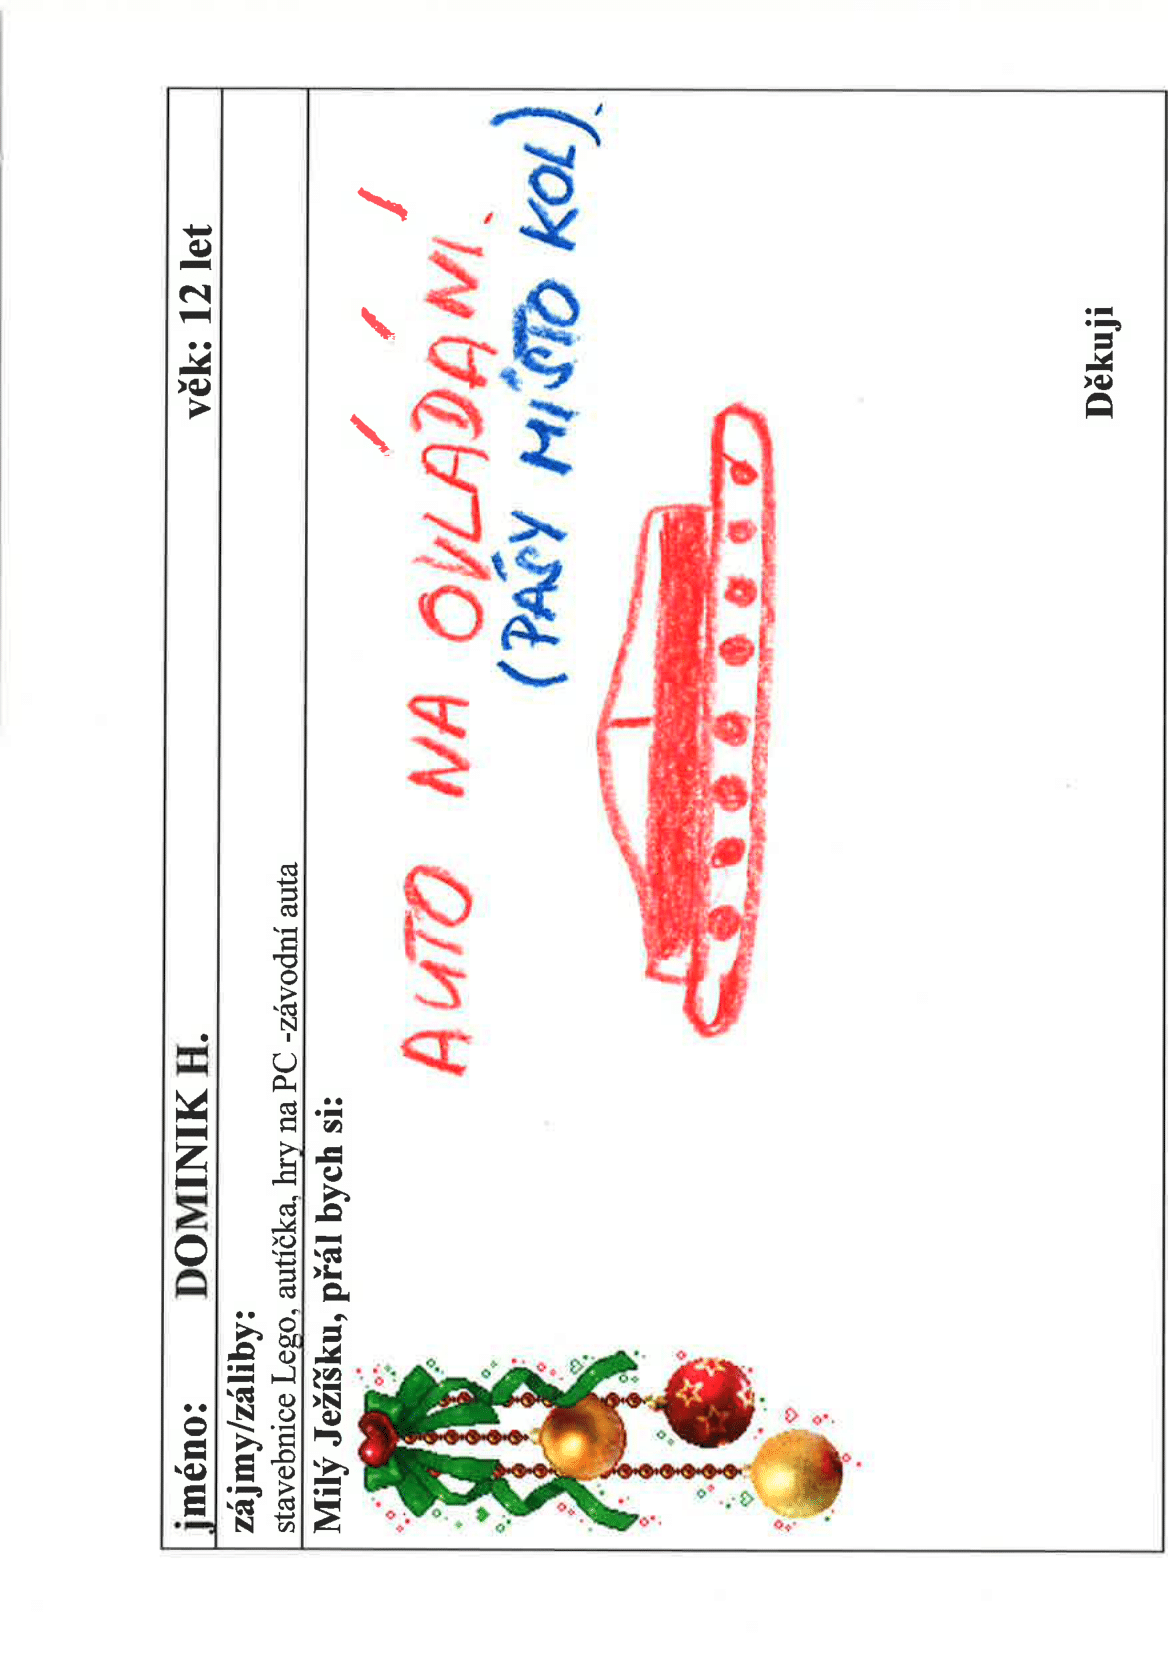 jméno: DOMINIK H. věk: 12 let
zájmy/záliby:
stavebnice Lego, autíčka, hry na PC -závodní auta
Milý Ježíšku, přál bych si:
AUTO NA OVLÁDÁNÍ.
(PÁSY MÍSTO KOL).
Děkuji